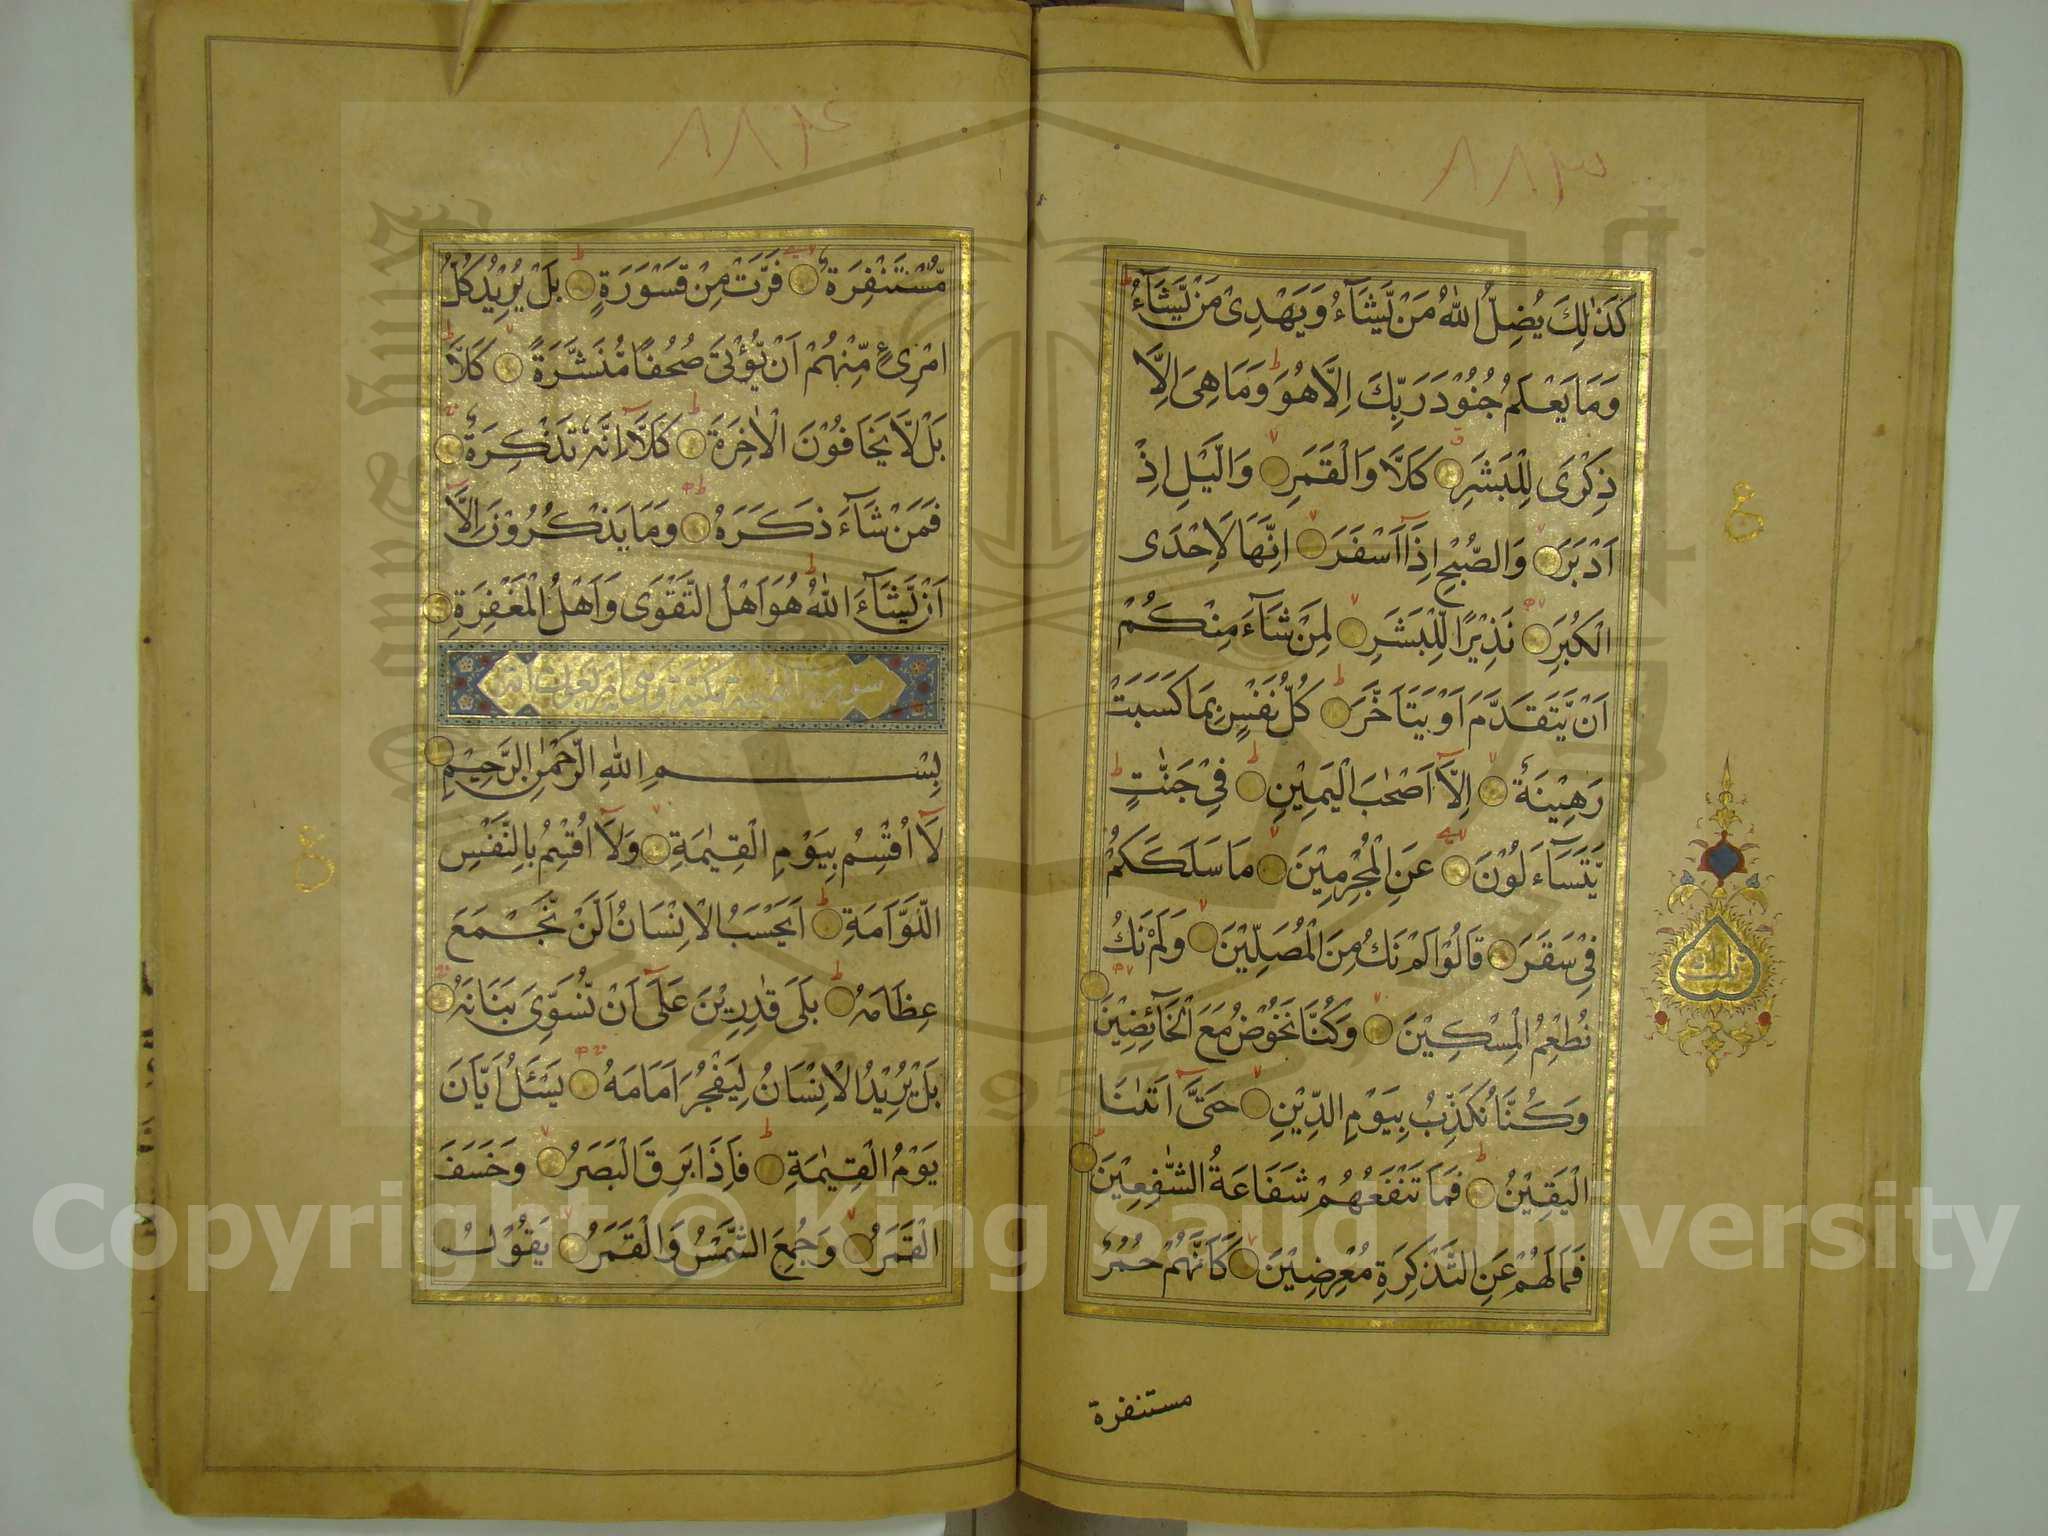 ٨٨٣
كَذٰلِكَ يُضِلُّ اللّٰهُ مَنْ يَّشَآءُ وَيَهْدِىْ مَنْ يَّشَآءُ ط
وَمَا يَعْلَمُ جُنُوْدَ رَبِّكَ اِلَّا هُوَ ط وَمَا هِىَ اِلَّا
ذِكْرٰى لِلْبَشَرِ كَلَّا وَالْقَمَرِ وَالَّيْلِ اِذْ
اَدْبَرَ وَالصُّبْحِ اِذَآ اَسْفَرَ اِنَّهَا لَاِحْدَى
الْكُبَرِ نَذِيْرًا لِّلْبَشَرِ لِمَنْ شَآءَ مِنْكُمْ
اَنْ يَّتَقَدَّمَ اَوْ يَتَاَخَّرَ ط كُلُّ نَفْسٍ بِمَا كَسَبَتْ
رَهِيْنَةٌ اِلَّآ اَصْحٰبَ الْيَمِيْنِ ط فِىْ جَنّٰتٍ ط
يَّتَسَآءَلُوْنَ عَنِ الْمُجْرِمِيْنَ مَا سَلَكَكُمْ
فِىْ سَقَرَ قَالُوْا لَمْ نَكُ مِنَ الْمُصَلِّيْنَ وَلَمْ نَكُ
نُطْعِمُ الْمِسْكِيْنَ وَكُنَّا نَخُوْضُ مَعَ الْخَآئِضِيْنَ
وَكُنَّا نُكَذِّبُ بِيَوْمِ الدِّيْنِ حَتّٰىٓ اَتٰىنَا
الْيَقِيْنُ ط فَمَا تَنْفَعُهُمْ شَفَاعَةُ الشّٰفِعِيْنَ ط
فَمَا لَهُمْ عَنِ التَّذْكِرَةِ مُعْرِضِيْنَ كَاَنَّهُمْ حُمُرٌ
مستنفرة
ع
٨٨٤
مُّسْتَنْفِرَةٌ فَرَّتْ مِنْ قَسْوَرَةٍ ط بَلْ يُرِيْدُ كُلُّ
امْرِئٍ مِّنْهُمْ اَنْ يُّؤْتٰى صُحُفًا مُّنَشَّرَةً كَلَّا ط
بَلْ لَّا يَخَافُوْنَ الْاٰخِرَةَ ط كَلَّآ اِنَّهٗ تَذْكِرَةٌ
فَمَنْ شَآءَ ذَكَرَهٗ ط وَمَا يَذْكُرُوْنَ اِلَّآ
اَنْ يَّشَآءَ اللّٰهُ ط هُوَ اَهْلُ التَّقْوٰى وَاَهْلُ الْمَغْفِرَةِ
سورة القيمة مكية وهى اربعون اية
بِسْمِ اللّٰهِ الرَّحْمٰنِ الرَّحِيْمِ
لَآ اُقْسِمُ بِيَوْمِ الْقِيٰمَةِ وَلَآ اُقْسِمُ بِالنَّفْسِ
اللَّوَّامَةِ ط اَيَحْسَبُ الْاِنْسَانُ اَلَّنْ نَّجْمَعَ
عِظَامَهٗ ط بَلٰى قٰدِرِيْنَ عَلٰٓى اَنْ نُّسَوِّىَ بَنَانَهٗ
بَلْ يُرِيْدُ الْاِنْسَانُ لِيَفْجُرَ اَمَامَهٗ يَسْئَلُ اَيَّانَ
يَوْمُ الْقِيٰمَةِ ط فَاِذَا بَرِقَ الْبَصَرُ وَخَسَفَ
الْقَمَرُ وَجُمِعَ الشَّمْسُ وَالْقَمَرُ يَقُوْلُ
ع
Copyright © King Saud University
1957